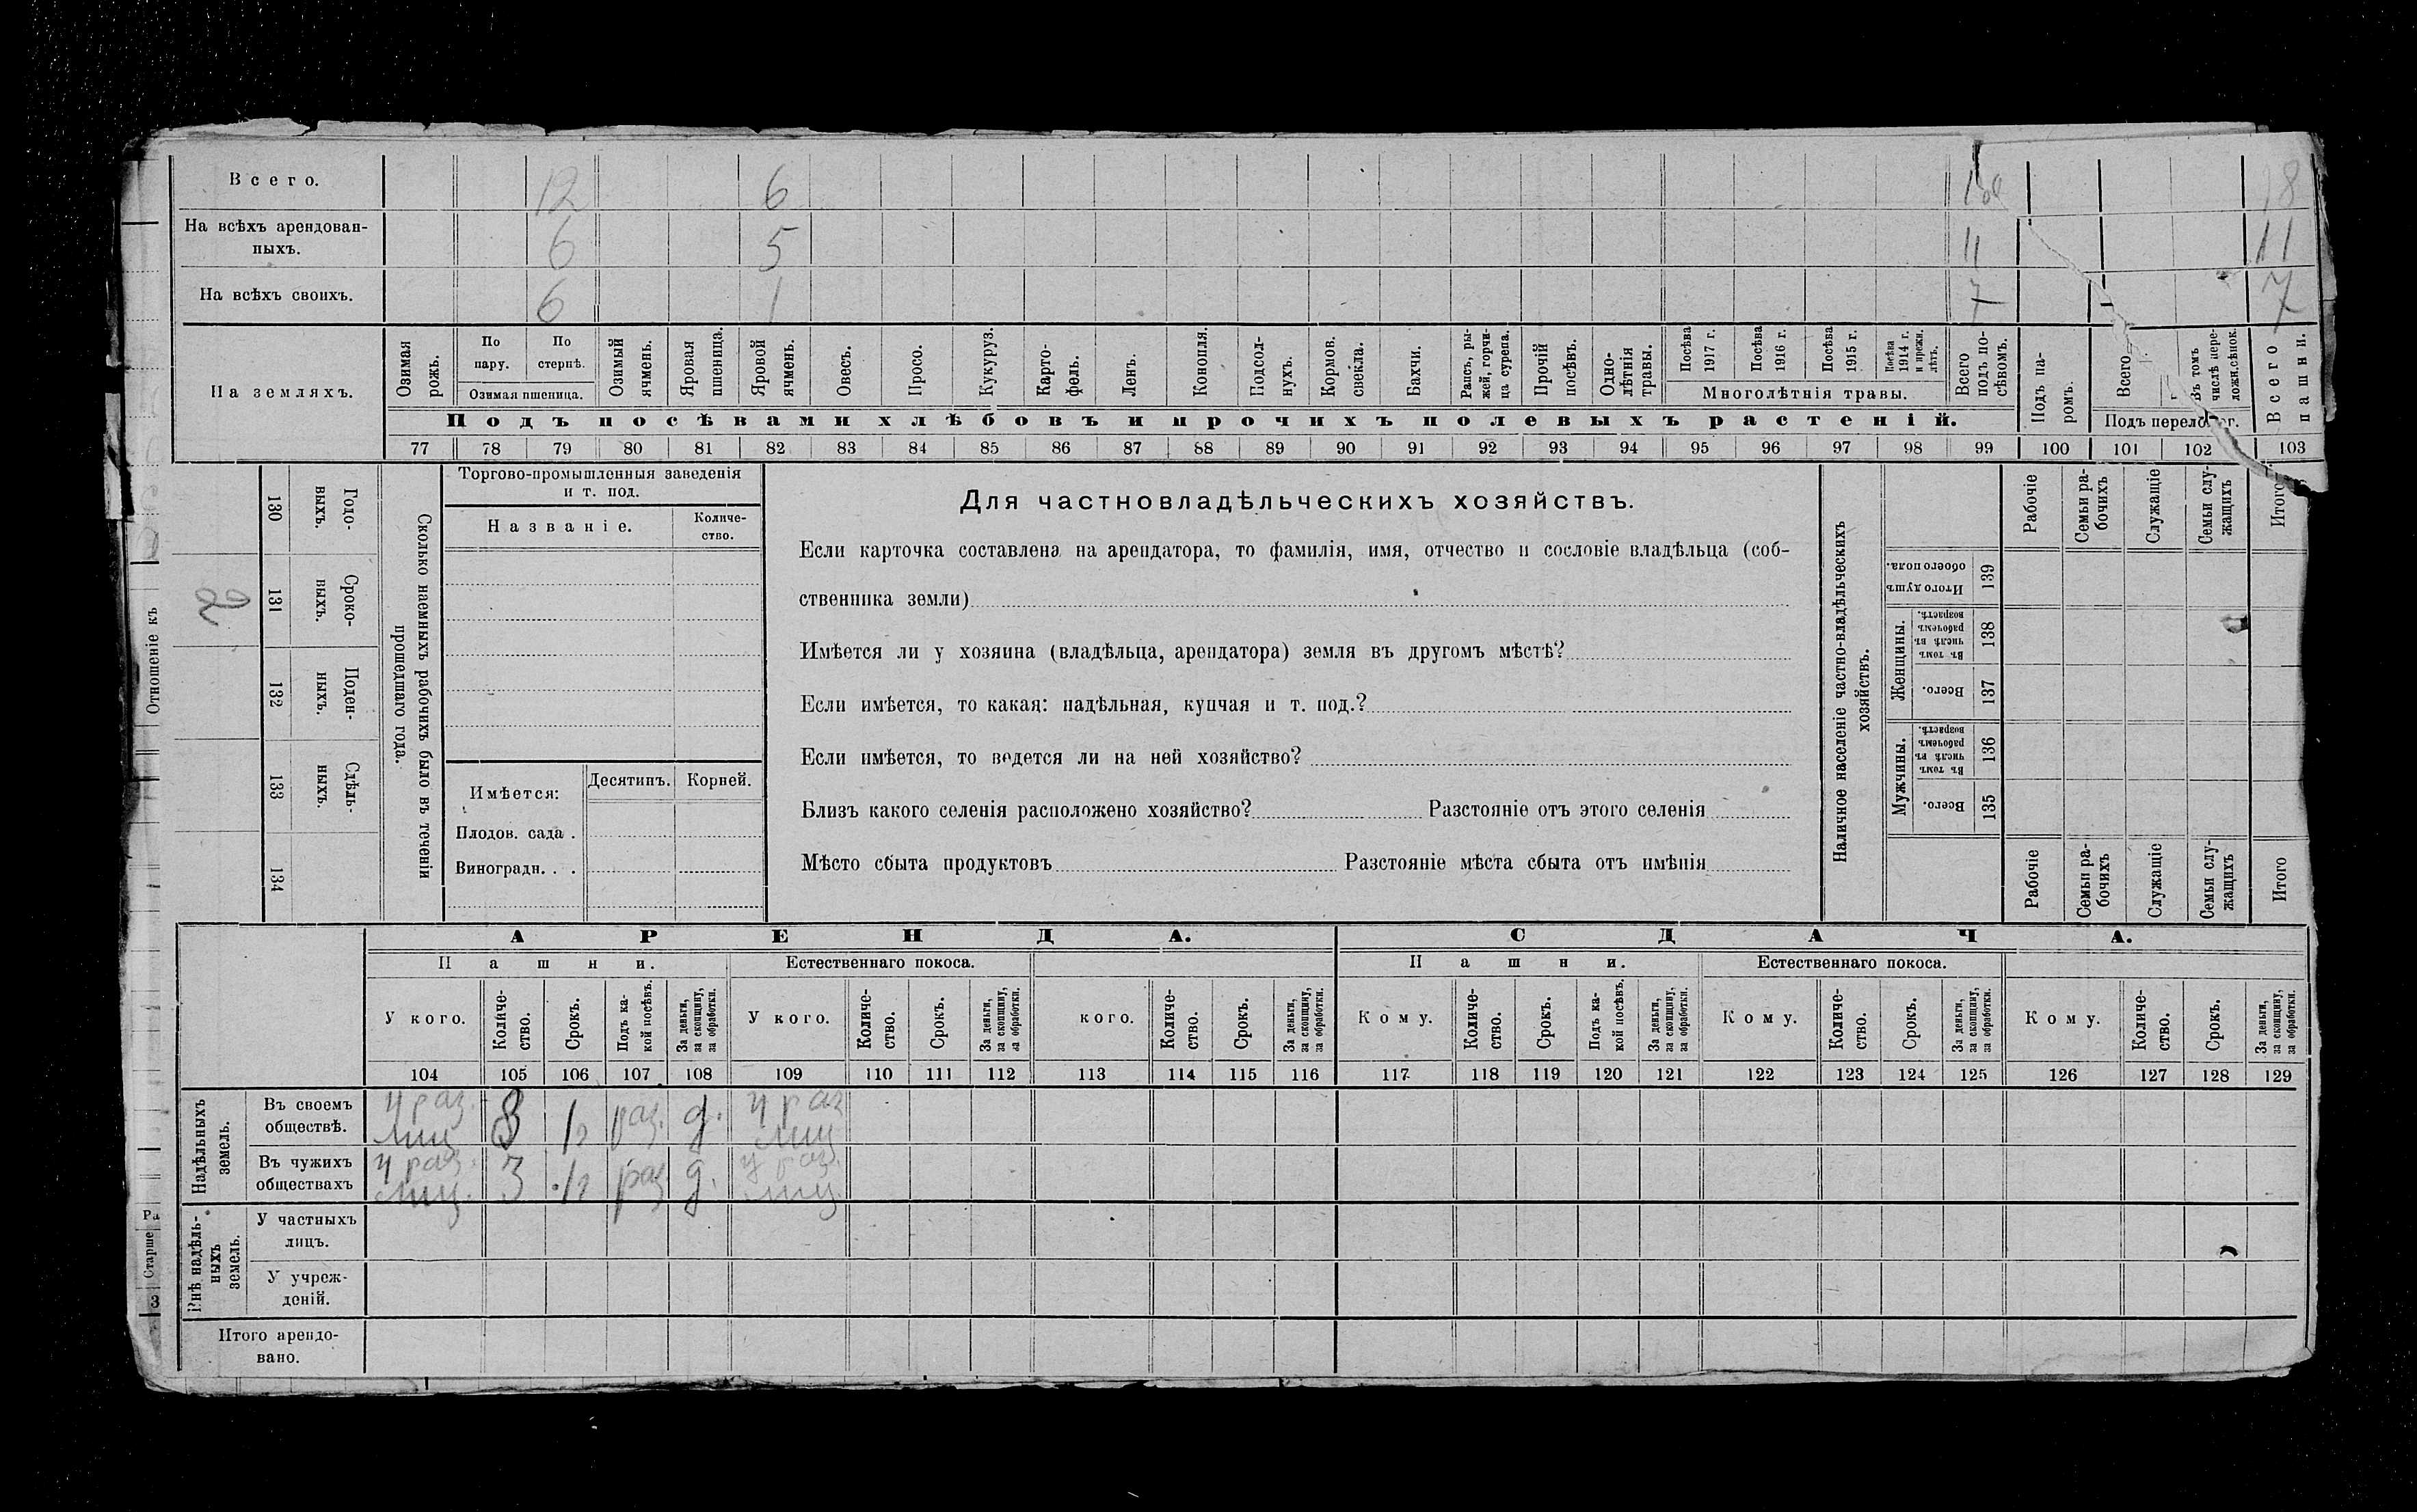 Всего. 12 6 18 18
На всѣхъ арендован-
ныхъ. 6 5 11 11
На всѣхъ своихъ. 6 1 7 7
На земляхъ.
Озимая рожь.
По пару.
По стернѣ.
Озимая пшеница.
Озимый ячмень.
Яровая пшеница.
Яровой ячмень.
Овесъ.
Просо.
Кукуруз.
Карто-
фель.
Ленъ.
Конопля.
Подсол-
нухъ.
Кормов.
свекла.
Бахчи.
Рапсъ, ры-
жей, горчи-
ца сурепа.
Прочій
посѣвъ.
Одно-
лѣтнія
травы.
Посѣва
1917 г.
Посѣва
1916 г.
Посѣва
1915 г.
Посѣва
1914 г.
и прежн.
лѣтъ.
Многолѣтнія травы.
Всего
подъ по-
сѣвомъ.
Подъ па-
ромъ.
Всего
Въ томъ
числѣ пере-
ложн.сѣнок.
Подъ перелог.
Всего
пашни.
Подъ посѣвами хлѣбовъ и прочихъ полевыхъ растеній.
77 78 79 80 81 82 83 84 85 86 87 88 89 90 91 92 93 94 95 96 97 98 99 100 101 102 103
Отношеніе къ
2
130 Годо-
выхъ.
131 Сроко-
выхъ.
132 Поден-
ныхъ.
133 Сдѣль-
ныхъ.
134
Сколько наемныхъ рабочихъ было въ теченіи
прошедшаго года.
Торгово-промышленныя заведенія
и т. под.
Названіе.
Количе-
ство.
Имѣется:
Десятин.
Корней.
Плодов. сада .
Виноградн. . .
Для частновладѣльческихъ хозяйствъ.
Если карточка составлена на арендатора, то фамилія, имя, отчество и сословіе владѣльца (соб-
ственника земли)
Имѣется ли у хозяина (владѣльца, арендатора) земля въ другомъ мѣстѣ?
Если имѣется, то какая: надѣльная, купчая и т. под.?
Если имѣется, то ведется ли на ней хозяйство?
Близъ какого селенія расположено хозяйство? Разстояніе отъ этого селенія
Мѣсто сбыта продуктовъ Разстояніе мѣста сбыта отъ имѣнія
Наличное населеніе частно-владѣльческихъ
хозяйствъ.
Рабочіе
Семьи ра-
бочихъ
Служащіе
Семьи слу-
жащихъ
Итого
Итого душъ
обоего пола.
139
Женщины.
Въ томъ
числѣ въ
рабочемъ
возрастѣ.
138
Всего.
137
Мужчины.
Въ томъ
числѣ въ
рабочемъ
возрастѣ.
136
Всего.
135
Рабочіе
Семьи ра-
бочихъ
Служащіе
Семьи слу-
жащихъ
Итого
АРЕНДА. СДАЧА.
Пашни. Естественнаго покоса. Пашни. Естественнаго покоса.
У кого.
Количе-
ство.
Срокъ.
Подъ ка-
кой посѣвъ.
За деньги,
за скопщину,
за обработки.
У кого.
Количе-
ство.
Срокъ.
За деньги,
за скопщину,
за обработки.
кого.
Количе-
ство.
Срокъ.
За деньги,
за скопщину,
за обработки.
Кому.
Количе-
ство.
Срокъ.
Подъ ка-
кой посѣвъ.
За деньги,
за скопщину,
за обработки.
Кому.
Количе-
ство.
Срокъ.
За деньги,
за скопщину,
за обработки.
Кому.
Количе-
ство.
Срокъ.
За деньги,
за скопщину,
за обработки.
104 105 106 107 108 109 110 111 112 113 114 115 116 117 118 119 120 121 122 123 124 125 126 127 128 129
Надѣльныхъ
земель.
Въ своемъ
обществѣ.
у раз.
лиц 8 1г раз. д. у раз
лиц
Въ чужихъ
обществахъ
у раз.
лиц. 3 1г раз д. у раз.
лиц.
Внѣ надѣль-
ныхъ
земель.
У частныхъ
лицъ.
У учреж-
деній.
Итого арендо-
вано.
Ра
Старше
3